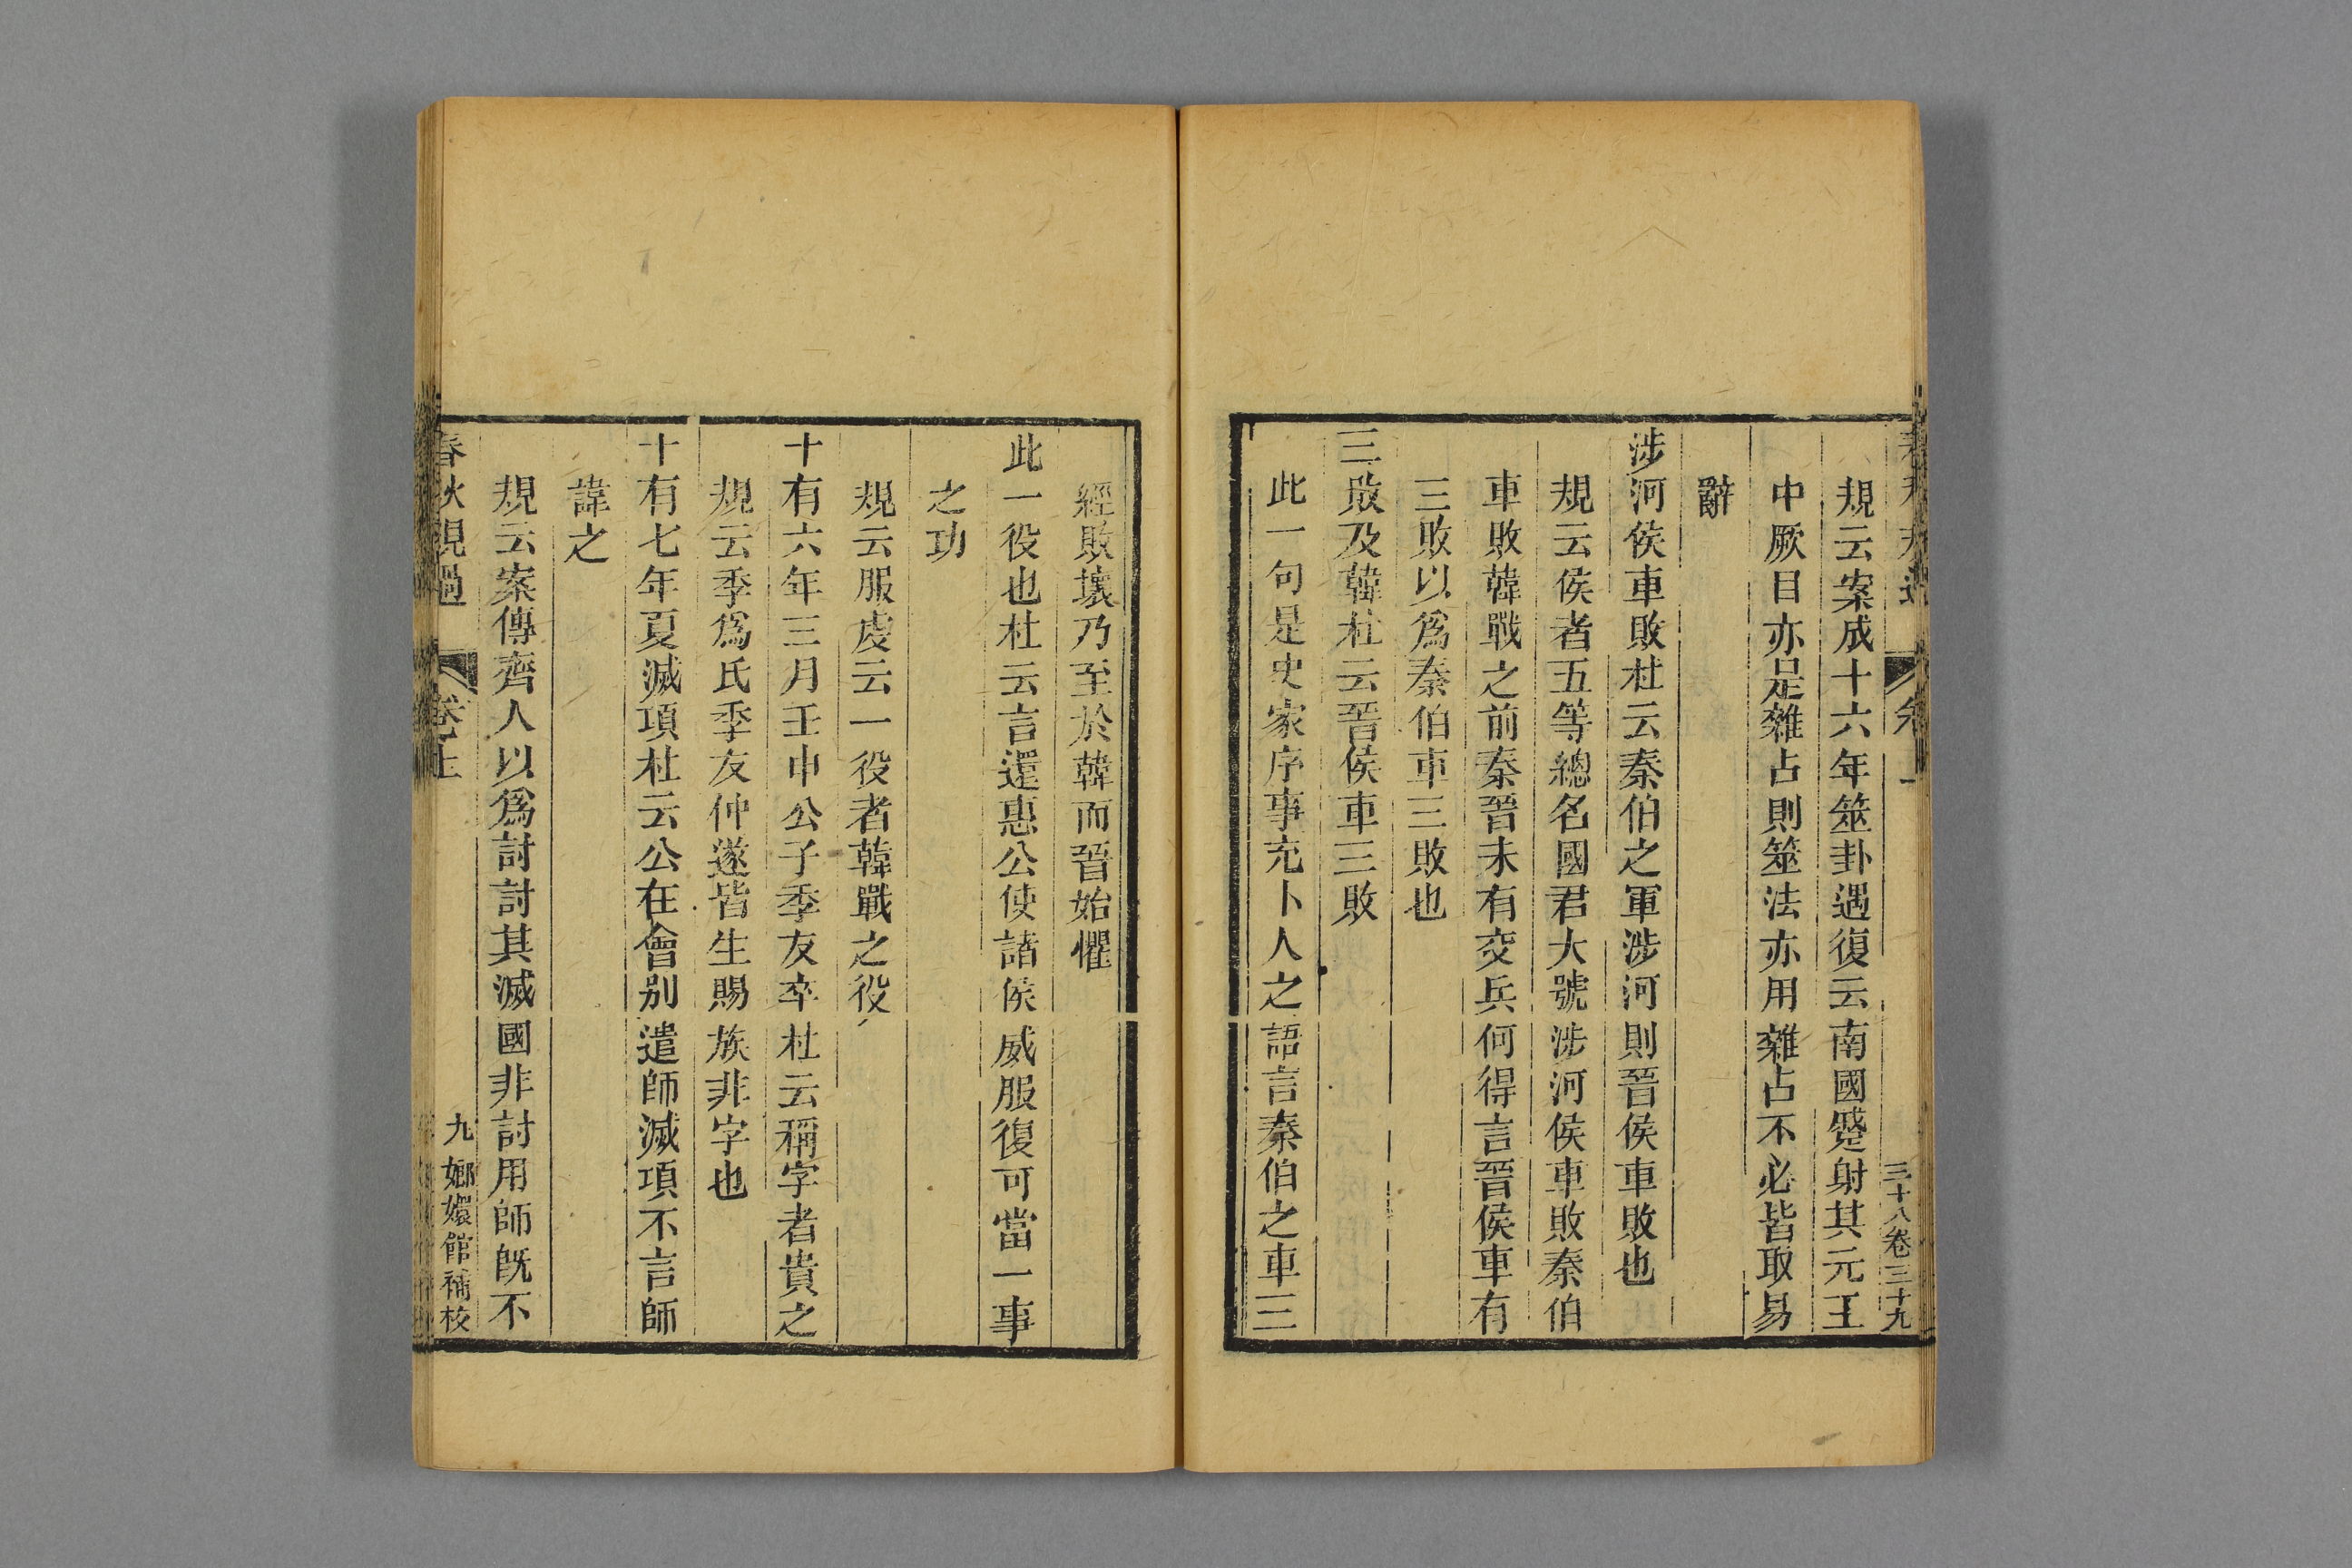 三十八卷三十九
規云案成十六年筮卦遇復云南國蹙射其元王
中厥目亦是雜占則筮法亦用雜占不必皆取易
辭
涉河侯車敗杜云秦伯之軍涉河則晉侯車敗也
規云侯者五等總名國君大號涉河侯車敗秦伯
車敗韓戰之前秦晉未有交兵何得言晉侯車有
三敗以爲秦伯車三敗也
三敗及韓杜云晉侯車三敗
此一句是史家序事充卜人之語言秦伯之車三
經敗壞乃至於韓而晉始懼
此一役也杜云言還惠公使諸侯威服復可當一事
之功
規云服虔云一役者韓戰之役
十有六年三月壬申公子季友卒杜云稱字者貴之
規云季爲氏季友仲遂皆生賜族非字也
十有七年夏滅項杜云公在會別遣師滅項不言師
諱之
規云案傳齊人以爲討討其滅國非討用師旣不
春秋規過 卷上 九 嫏嬛館補校